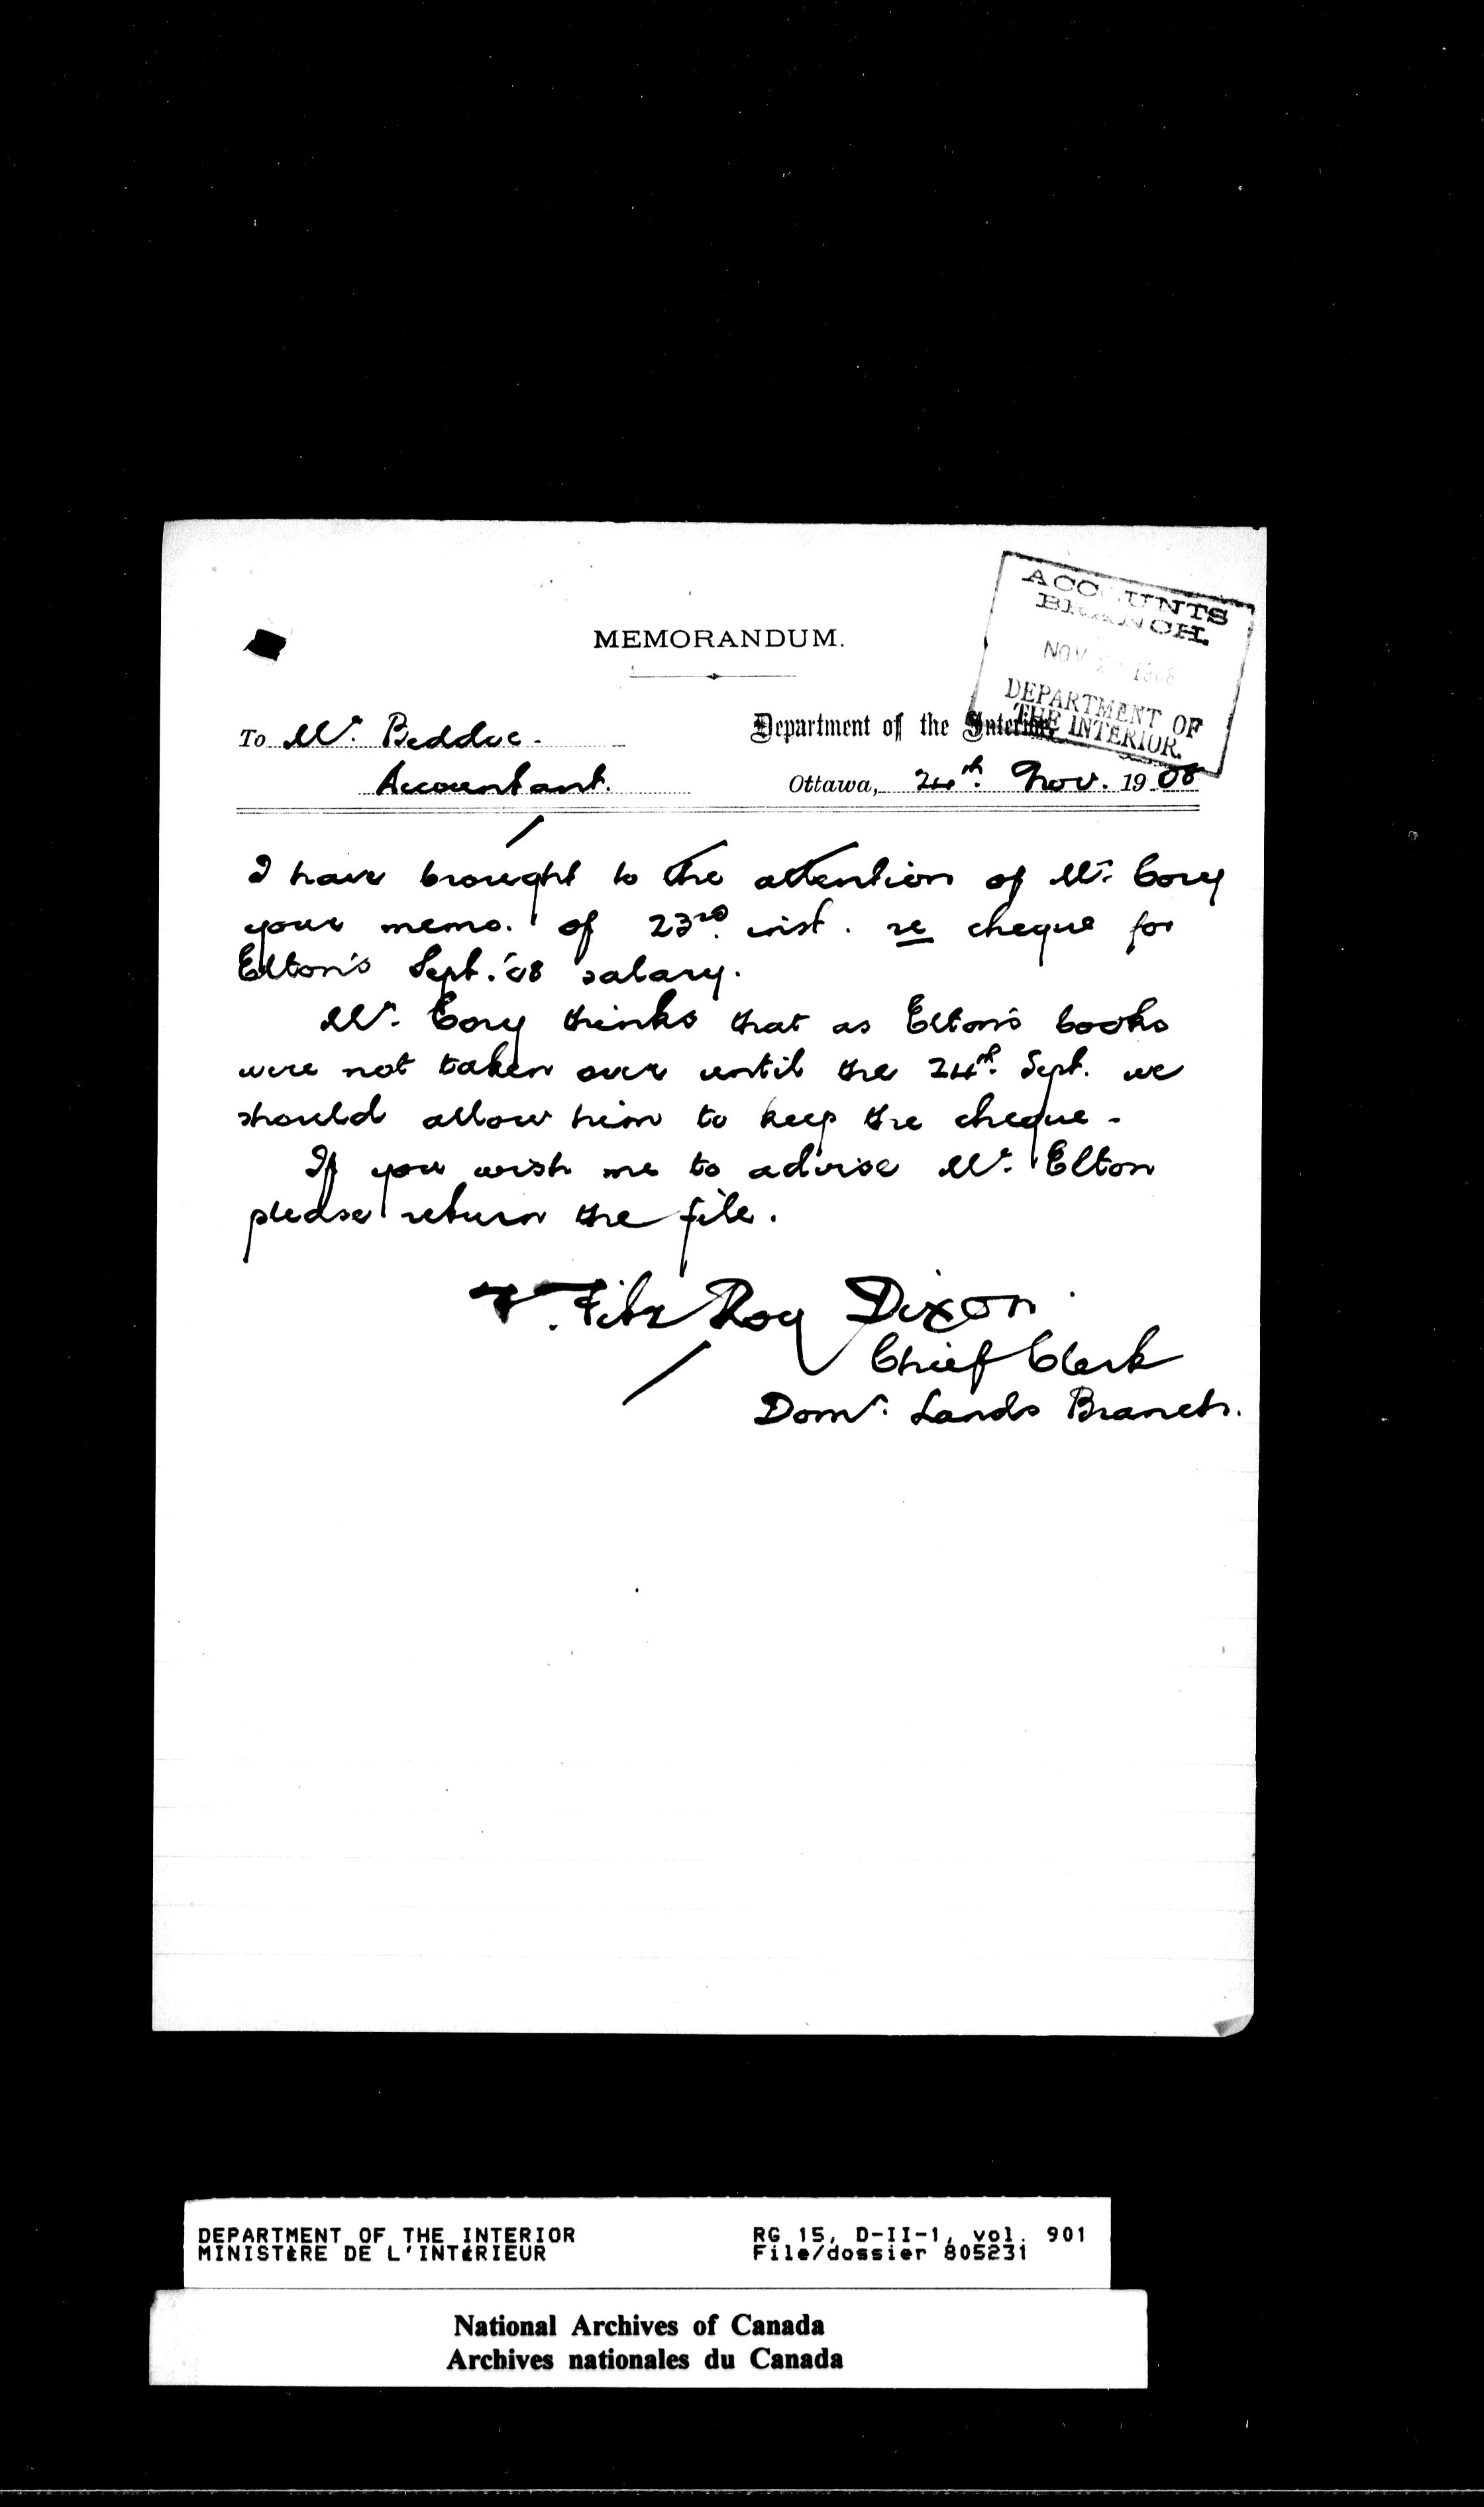 ACCOUNTS
BRANCH.
NOV 1908
DEPARTMENT OF
THE INTERIOR.
MEMORANDUM.
To Mr. Beddoe.
Department of the Interior,
Accountant.
Ottawa, 24th. Nov. 1908
I have brought to the attention of Mr. Cory
your memo. of 23rd. inst. re cheque for
Elton's Sept. '08 salary.
Mr. Cory thinks that as Elton's books
were not taken over until the 24th. Sept. we
should allow him to keep the cheque.
If you wish me to advise Mr. Elton
please return the file.
Fitz Roy Dixon
Chief Clerk
Domn. Lands Branch.
DEPARTMENT OF THE INTERIOR
MINISTÈRE DE L'INTÉRIEUR
RG 15, D-II-1, vol. 901
File/dossier 805231
National Archives of Canada
Archives nationales du Canada